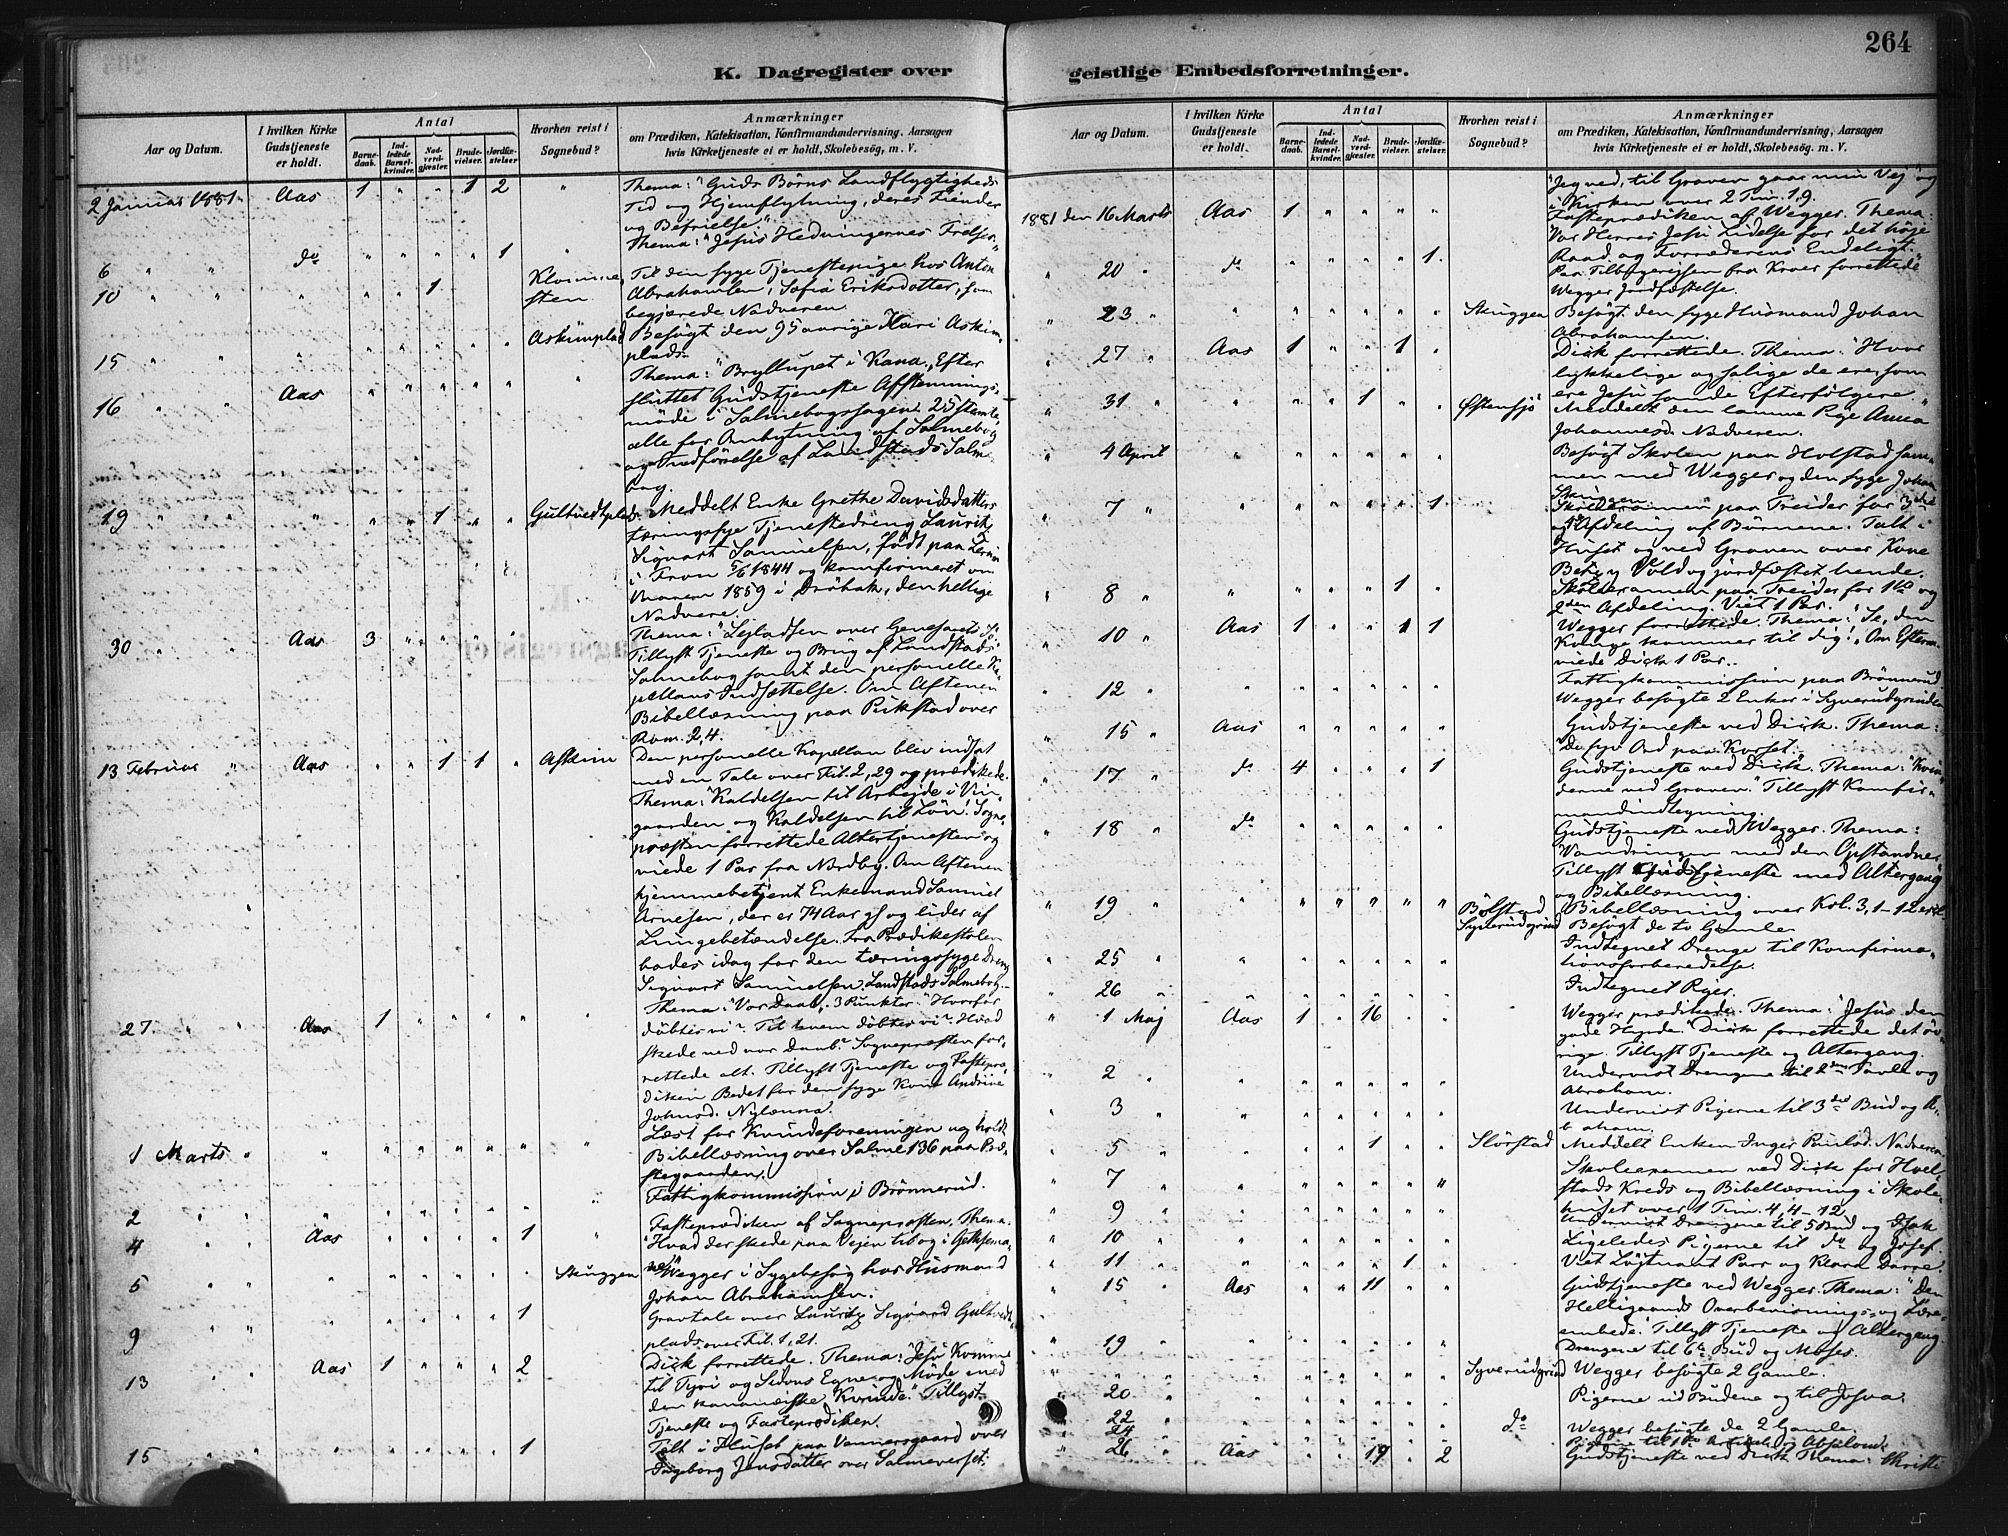 264
K. Dagregister over geistlige Embedsforretninger.
Aar og Datum.
I hvilken Kirke Gudstjeneste er holdt.
Antal
Barnedaab.
Indledede Barselkvinder.
Nadverdgjæster.
Brudevielser.
Jordfæstelser.
Hvorhen reist i Sognebud?
Anmærkninger
om Prædiken, Katekisation, Konfirmandundervisning, Aarsagen
hvis Kirketjeneste ei er holdt, Skolebesög, m. V.
2 Januar 1881. Aas 1 " " 1 2 " Thema: "Guds Börns Landflygtigheds
Tid og Hjemflytning, deres Fiender
og Befrielse."
6 " " do " " " " 1 " Thema: "Jesus Hedningernes Frelser."
10 " " " " " 1 " " Til den syge Tjenestepige hos Anton
Abrahamsen, Sofia Eriksdatter, som
begjærede Nadveren.
15 " " " " " " " " Askimplad Besögt den 95 aarige Kari Askim-
plads.
16 " " Aas " " " " " " Thema: "Bryllupet i Kana." Efter
sluttet Gudstjeneste Afstemnings-
möde i Salmebogssagen. 25 stemte
alle for Ombytning af Salmebog
og Indförelse af Landstads Salme-
bog.
19 " " " " " 1 " " Gultvedtplads Meddelt Enke Grethe Davidsdatters
tæringssyge Tjenestedreng Laurits
Sigvart Samuelsen, födt paa
i Fron 5/6 1844 og konfirmeret om
Vaaren 1859 i Dröbak, den hellige
Nadvere.
30 " " Aas 3 " " " " " Thema: "Sejladsen over Genesarets Sö"
Tillyst Tjeneste og Brug af Landstads
Salmebog samt den personelle Ka-
pellans Indsættelse. Om Aftenen
Bibellæsning paa Pukstad over
Rom. 2,4.
13 Februar " Aas " " 1 1 " Askim Den personelle Kapellan blev indsat
med en Tale over Fil. 2, 29 og prædikede.
Thema: "Kaldelsen til Arbejde i Vin-
gaarden og Kaldelsen til Lön." Sogne-
præsten forrettede Altertjenesten og
viede 1 Par fra Nordby. Om Aftenen
hjemmebetjent Enkemand Samuel
Arnesen, der er 74 Aar gl og lider af
Lungebetændelse. Fra Prædikestolen
bades idag for den tæringssyge Dreng
Sigvart Samuelsen. Landstads Salmebog.
27 " " Aas 1 " " " " " Thema: "Vor Daab", 3 Punkter: "Hvorfor
döbtes vi? Til hvem döbtes vi? Hvad
skede ved vor Daab?" Sognepræsten for-
rettede alt. Tillyst Tjeneste og Fastepræ-
diken. Bedet for den syge Kone Andrine
Johnsd. Nylænna.
1 Marts " " " " " " " " Læst for Kvindeforeningen og holdt
Bibellæsning over Salme 136 paa Præ-
stegaarden.
2 " " " " " " " " " Fattigkommission i Brönnerud.
4 " " Aas " " " " 1 " Fasteprædiken af Sognepræsten. Thema:
"Hvad der skede paa Vejen til og i Gethsema-
ne."
5 " " " " " " " " Skuggen Wegger i Sygebesög hos Husmand
Johan Abrahamsen.
9 " " " " " " " 1 Gravtale over Lauritz Sigvard Gultvedt-
plads over Fil. 1, 21.
13 " " Aas 1 " " " 2 Dick forrettede. Thema: "Jesu Komme
til Tyri og Sidons Egne og Möde med
den kananæiske Kvinde." Tillyst
Tjeneste og Fasteprædiken.
15 " " " " " " " 1 Talt i Huset paa Vennersgaard over
Ingeborg Jensdatter over Salmeverset:
Aar og Datum.
I hvilken Kirke Gudstjeneste er holdt.
Antal
Barnedaab.
Indledede Barselkvinder.
Nadverdgjæster.
Brudevielser.
Jordfæstelser.
Hvorhen reist i Sognebud?
Anmærkninger
om Prædiken, Katekisation, Konfirmandundervisning, Aarsagen
hvis Kirketjeneste ei er holdt, Skolebesög, m. V.
"Jeg ved, til Graven gaar min Vej" og
i Kirken over 2 Tim. 1,9.
1881 den 16 Marts Aas 1 " " " " Fasteprædiken af Wegger. Thema:
"Vor Herres Jesu Lidelse for det höje
Raad og Forræderens Endeligt."
" 20 " do " " " " 1. Paa Tilbagerejsen fra Kroer forrettede
Wegger Jordfæstelse.
" 23 " " " " " " " Skuggen Besögt den syge Husmand Johan
Abrahamsen.
" 27 " Aas 1 " " 1 " Dick forrettede. Thema: "Hvor
lykkelige og salige de ere, som
ere Jesu sande Efterfölgere."
" 31 " " " " 1 " " Østensjö Meddelt den lamme Pige Anna
Johannesd. Nadveren.
" 4 April " " " " " " Besögt Skolen paa Holstad sam-
men med Wegger og den syge Johan
Skuggen.
" 7 " " " " " " 1 Skoleexamen paa Treider for 3die
Afdeling af Börnene. Talt i
Huset og ved Graven over Kone
Betzy Vold og jordfæstet hende.
" 8 " " " " " 1 " Skoleexamen paa Treider for 1ste og
2den Afdeling. Viet 1 Par.
" 10 " Aas 1 " " 1 1 Wegger forrettede. Thema: "Se, din
Konge kommer til dig." Om Efterm.
viede Dick 1 Par.
" 12 " " " " " " " Fattigkommission paa Brönnerud
Wegger besögte 2 Enker i Syverudgrinden
" 15 " Aas " " " " " Gudstjeneste ved Dick. Thema:
"De syv Ord paa Korset."
" 17 " do 4 " " " 1 Gudstjeneste ved Dick. Thema: "Kvin-
derne ved Graven." Tillyst Konfir-
mandindtegning.
" 18 " do " " " " " Gudstjeneste ved Wegger. Thema:
"Vandringen med den Opstandne."
Tillyst Gudstjeneste med Altergang
og Bibellæsning.
" 19 " " " " " " " Bölstad Bibellæsning over Kol. 3, 1-12
Syverudgrind Besögt de to Gamle
" 25 " " " " " " " Indtegnet Drenge til Konfirma-
tionsforberedelse.
" 26 " " " " " " " Indtegnet Piger.
" 1 Maj Aas 1 " 16 " " " Wegger prædikede. Thema: "Jesus den
gode Hyrde." Dick forrettede det öv-
rige. Tillyst Tjeneste og Altergang.
" 2 " " " " " " " Undervist Drengene til 2den Tavle og
Abraham.
" 3 " " " " " " " Undervist Pigerne til 3die Bud og A-
braham.
" 5 " " " " 1 " " Slörstad Meddelt Enken Inger Paulsd. Nadveren
" 7 " " " " " " " Skoleexamen ved Dick for Hol-
stads Kreds og Bibellæsning i Skole-
huset over 1 Tim. 4, 4-12.
" 9 " " " " " " " Undervist Drengene til 5 Bud og Isak
" 10 " " " " " " " Ligeledes Pigerne til do og Josef.
" 11 " " " " " 1 " Viet Löjtnant Pars og Klara Darre.
" 15 " Aas " " 11 " " Gudstjeneste ved Wegger. Thema: "Den
Helligaands Overbevisnings- og Lære-
embede." Tillyst Tjeneste og Altergang.
" 19 " " " " " " " Drengene til 6te Bud og Moses.
" " " " " " " " Syverudgrind Wegger besögte 2 Gamle.
" 20 " " " " " " " Pigerne ud Budene og til Josva.
" 22 " " " " " " " do Wegger besögte de 2 Gamle
" 24 " " " " " " " Pigerne til 1ste Artikel og Absalon.
" 26 " Aas " " 19 " 2 Gudstjeneste ved Dick. Thema: Christi